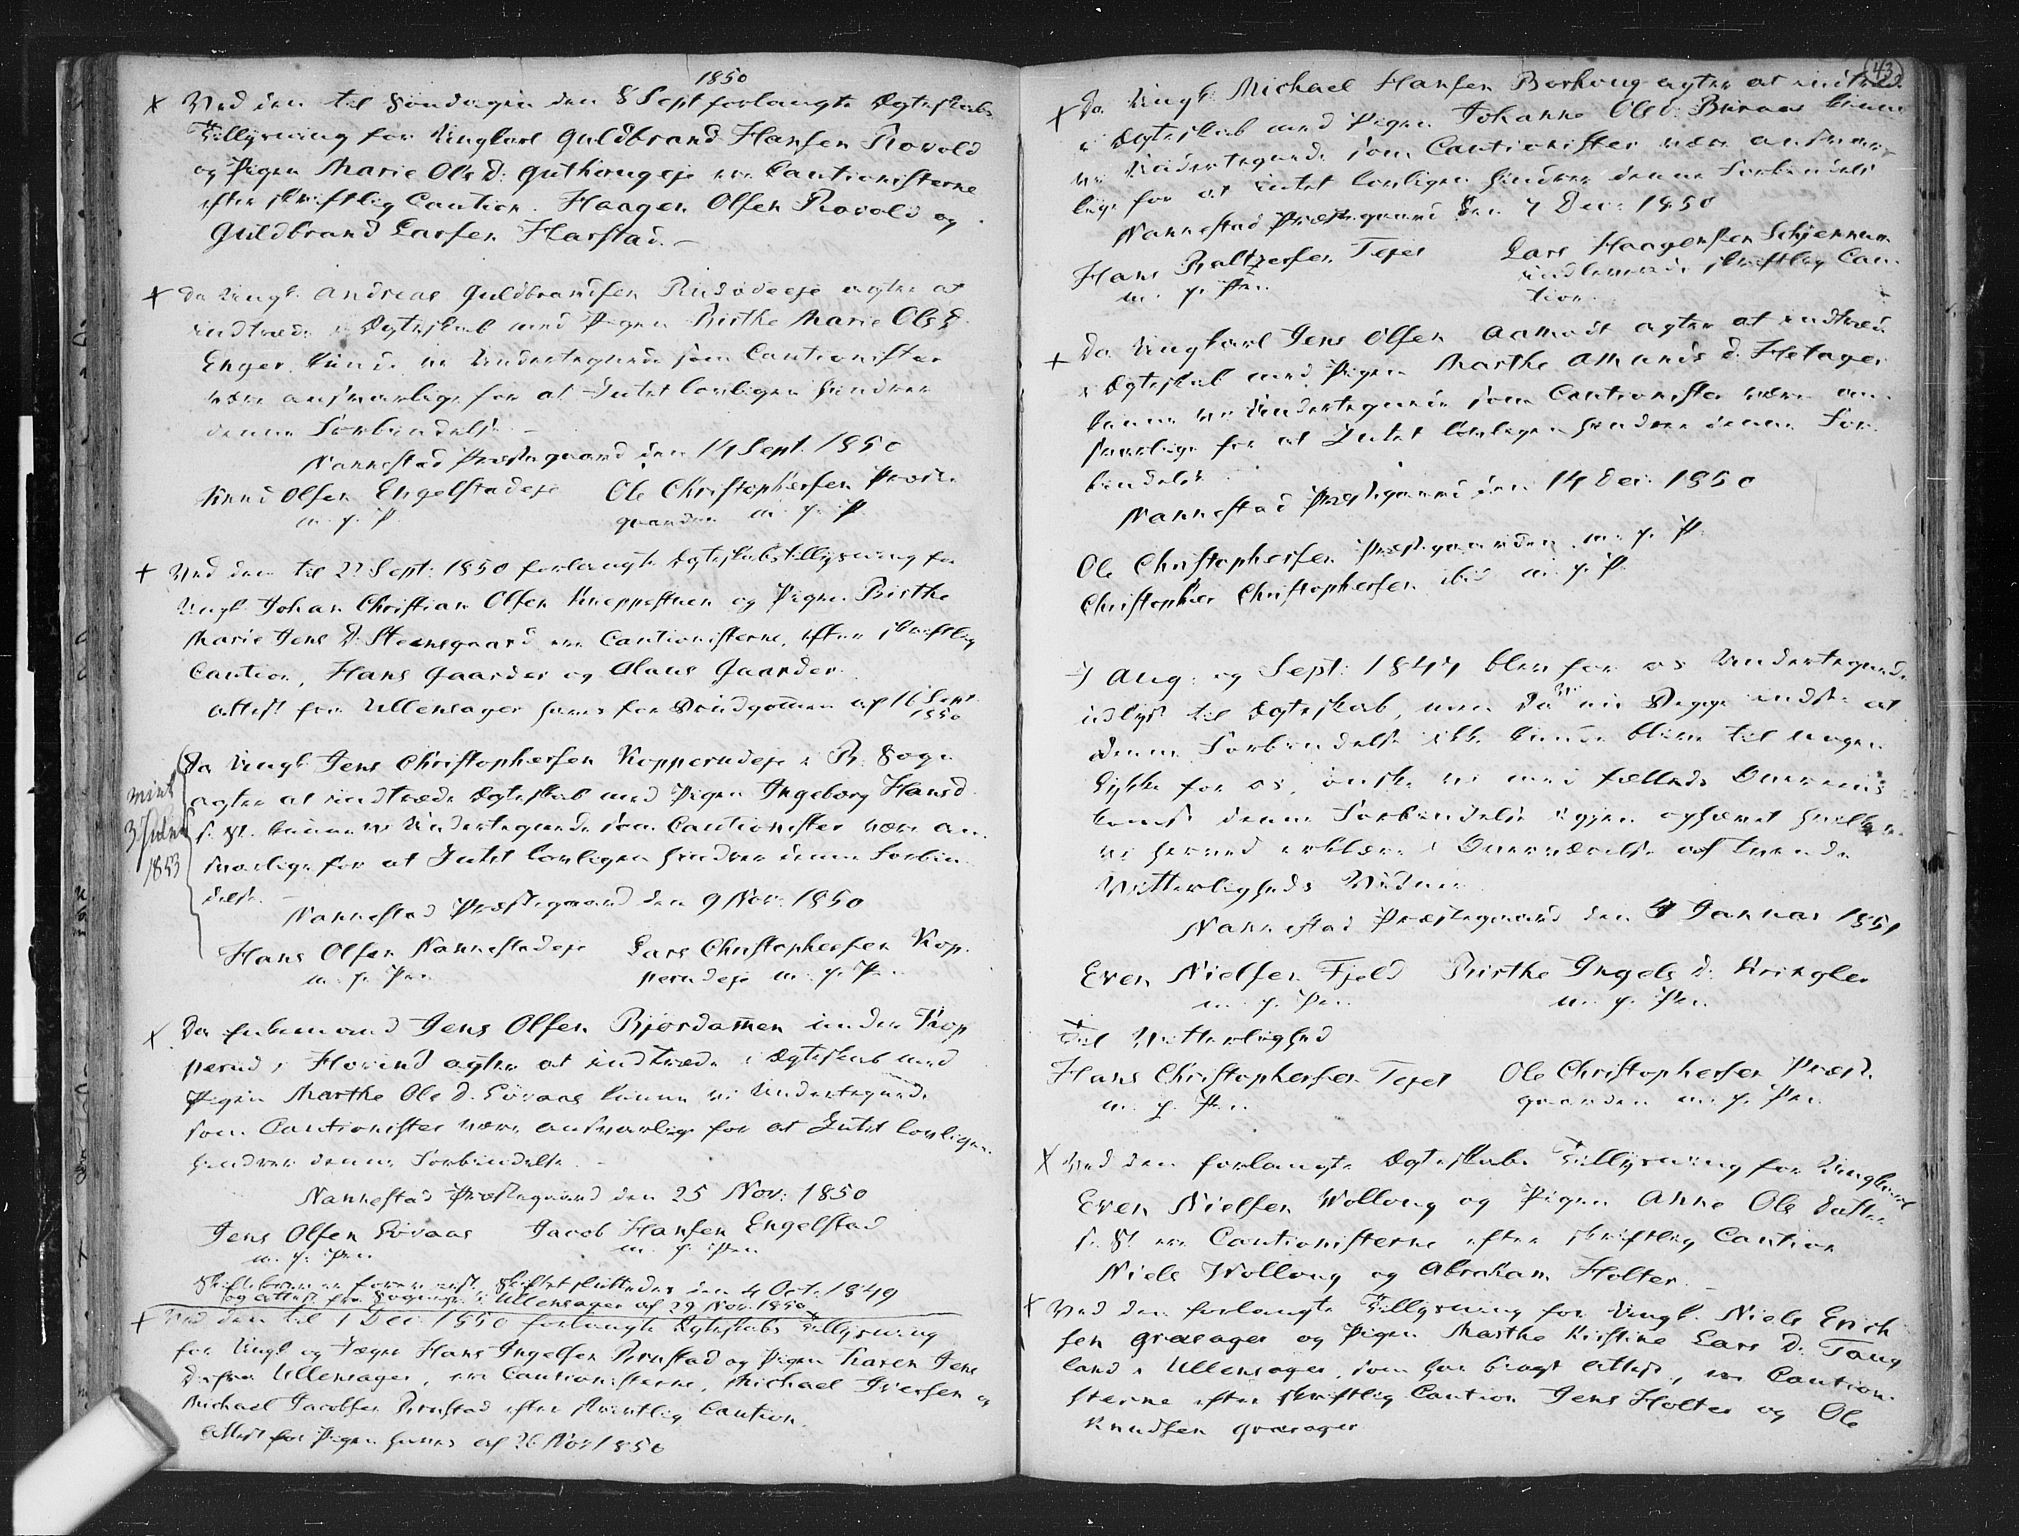 1850
x Ved den til Søndagen den 8 Sept forlangte Ægteskabs
Tillysning for Ungkarl Guldbrand Hansen Rovold
og Pigen Marie Ols D. Guthougeje ere Cautionisterne
efter skriftlig Caution. Haagen Olsen Rovold og
Guldbrand Larsen Harstad. –
+ Da Ungk. Andreas Guldbrandsen agter at
indtræde i Ægteskab med Pigen Birthe Marie Ols D.
Enger kunne vi Undertegnede som Cautionister
være ansvarlige for at Intet lovligen hindrer
denne Forbindelse –
Nannestad Præstegaard den 14 Sept. 1850
Knud Olsen Engelstadeje Ole Christophersen Præste
m. f. P. gaarden m. f. P.
+ Ved den til 22 Sept: 1850 forlangte Ægteskabstillysning for
Ungk. Johan Christian Olsen og Pigen Birthe
Marie Jens D. Steensgaard ere Cautionisterne, efter skriftlig
Caution, Hans Gaarder og Claus Gaarder.
Attest fra Ullensager haves for Brudgommen af 16 Sept
1850
Da Ungk. Jens Christophersen Kopperudeje i B. Sogn
agter at indtræde Ægteskab med Pigen Ingeborg Hansd.
s. St. kunne vi Undertegnede som Cautionister være an-
svarlige for at Intet lovligen hindrer denne Forbin-
delse. –
3 Juli
1853
Nannestad Præstegaard den 9 Nov: 1850
Hans Olsen Nannestadeje Lars Christophersen Kop-
m. f. Pen perudeje m. f. Pen
x Da Enkemand Jens Olsen Bjørdammen under Kop
perud i Hovind agter at indtræde i Ægteskab med
Pigen Marthe Ole D. Lovaas kunne vi Undertegnede
som Cautionister være ansvarlige for at Intet lovligen
hindrer denne Forbindelse. –
Nannestad Præstegaard den 25 Nov: 1850
Jens Olsen Lovaas Jacob Hansen Engelstad
m. f. Pen m. f. Pen
Skiftebrev er forevist, Skiftet sluttedes den 4 Oct. 1849
og Attest fra Sogne i Ullensager af 29 Nov. 1850
+ Ved den til 1 Dec: 1850 forlangte Ægteskabs Tillysning
for Ungk. og Jæger Hans Ingelsen Bonstad og Pigen Karen Jens
D. fra Ullensager, ere Cautionisterne, Michael Iversen og
Michael Jacobsen Bonstad efter skriftlig Caution.
Attest for Pigen haves af 26 Nov 1850
43
x Da Ungk. Michael Hansen Borhoug agter at indtræde
i Ægteskab med Pigen Johanne Ols D. kunne
vi Undertegnede som Cautionister være ansvar-
lige for at Intet lovligen hindrer denne Forbindelse
Nannestad Præstegaard den 7 Dec: 1850
Hans Baltzersen Tejet Lars Haagensen Schjennum
m. f. Pen indleverede skriftlig Cau-
tion.
+ Da Ungkarl Jens Olsen Aamodt agter at indtræde
i Ægteskab med Pigen Marthe Amunds D. Hetager
kunne vi Undertegnede som Cautionister være an-
svarlige for at Intet lovligen hindrer denne For-
bindelse
Nannestad Præstegaard den 14 Dec: 1850
Ole Christophersen Præstegaarden m. f. P.
Christopher Christophersen ibid m. f. P.
I Aug: og Sept: 1847 blev for os Undertegnede
udlyst til Ægteskab, men da vi nu Begge indse at
denne Forbindelse ikke kunde blive til nogen
Lykke for os, ønske vi med fælleds Overens-
komst denne Forbindelse igjen ophævet hvilket
vi herved erklære i Overværelse af tvende
Vitterligheds Vidner
Nannestad Præstegaard den 4 Januar 1851
Even Nielsen Fjeld Birthe Ingels D. Kringler
m. f. Pen m. f. Pen
Til Vitterlighed
Hans Christophersen Tejet Ole Christophersen Præst-
m. f. Pen gaarden m. f. Pen
x Ved den forlangte Ægteskabs Tillysning for Ungkarl
Even Nielsen Wolloug og Pigen Anne Ole datter
s. St. ere Cautionisterne efter skriftlig Caution
Niels Wolloug og Abraham Holter. –
x Ved den forlangte Tillysning for Ungk. Niels Erich
sen Græsager og Pigen Marthe Kirstine Lars D. Taug
land i Ullensager, som har bragt Attest, ere Caution-
sterne efter skriftlig Caution Jens Holter og Ole
Knudsen Græsager